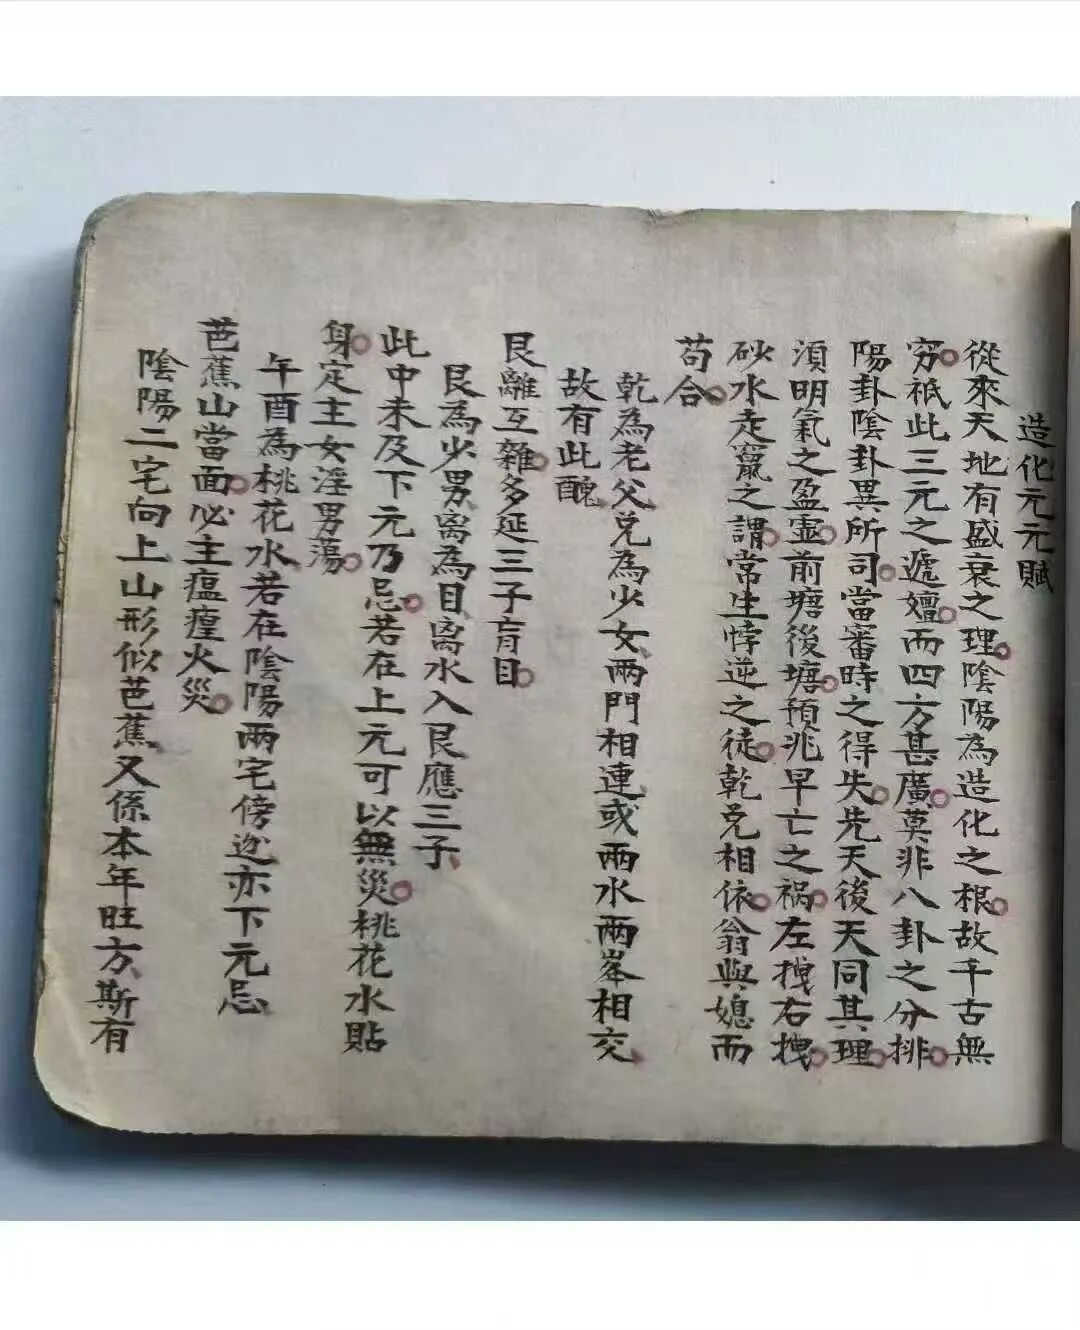 造化元元賦
從來天地有盛衰之理。陰陽為造化之根。故千古無
窮。祇此三元之遞嬗。而四方甚廣。莫非八卦之分排。
陽卦陰卦異所司。當審時之得失。先天後天同其理。
須明氣之盈虛。前塘後塘。預兆早亡之禍。左拽右拽。
砂水走竄之謂。常生悖逆之徒。乾兌相依。翁與媳而
苟合。
乾為老父兌為少女、兩門相連、或兩水兩峯相交、
故有此醜
艮離互雜。多延三子肓目。
艮為少男、离為目、离水入艮應三子、
此中未及下元乃忌。若在上元可以無災。桃花水貼
身。定主女淫男蕩。
午酉為桃花水若在陰陽兩宅傍边亦下元忌
芭蕉山當面。必主瘟癀火災。
陰陽二宅向上山形似芭蕉、又係本年旺方、斯有